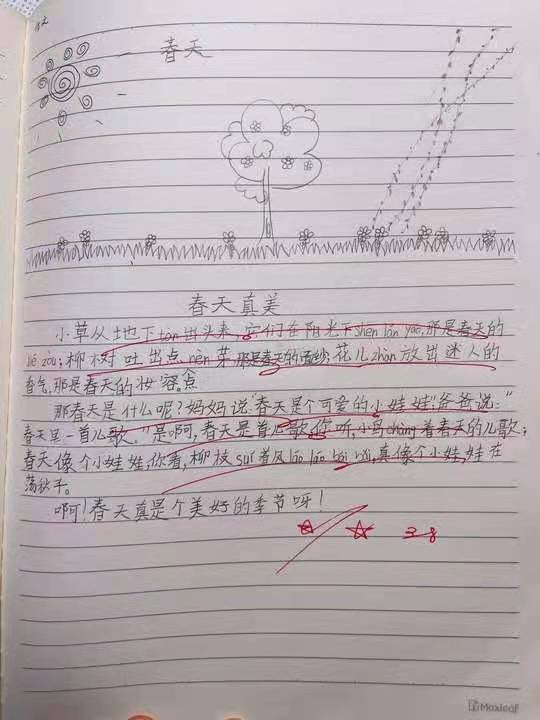 春天
春天真美
小草从地下tàn出头来,它们在阳光下shēn lǎn yāo,那是春天的
柳树吐出点nèn芽那是春天的 花儿zhàn放出迷人的
香气,那是春天的妆容。
那春天是什么呢?妈妈说:春天是个可爱的小娃娃!爸爸说:"
春天是一首儿歌。"是啊,春天是首儿歌,你听,小鸟chàng着春天的儿歌;
春天像个小娃娃,你看,柳枝suí着风 bǎi,真像个小娃娃在
荡秋千。
啊!春天真是个美好的季节呀!
3.8
Moxleaf